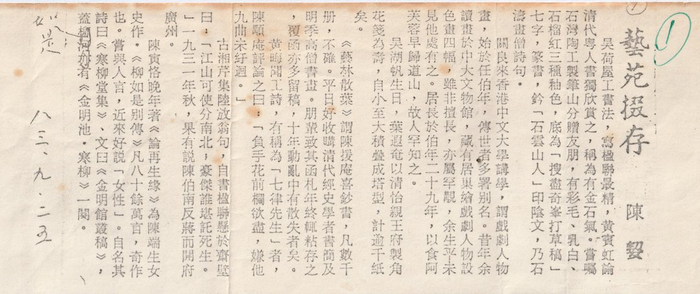 ①
藝苑掇存　陳㓗
吳荷屋工書法，寫楹聯最精，黃賓虹論
清代粵人書獨欣賞之，稱為有金石氣。嘗囑
石灣陶工製筆山分贈友朋，有彩毛、乳白、
石榴紅三種釉色，底為「搜盡奇峯打草稿」
七字，篆書，鈐「石雲山人」印陰文，乃石
濤畫僧詩句。
關良來香港中文大學講學，謂戲劇人物
畫，始於任伯年，傳世者多署別名。昔年余
讀畫於中大文物館，藏有居巢繪戲劇人物設
色畫四幅，雖非擅長，亦屬罕覯，余生平未
見他處有之。居長於伯年二十九年，以食阿
芙蓉早歸道山，故人罕知之。
吳湖帆生日，葉遐菴以清怡親王府製角
花箋為壽，自小至大積疊成塔型，計逾千紙
矣。
《藝林散葉》謂陳援庵喜鈔書，凡數千
册，不確。平日好收購清代經史學者書簡及
明季高僧書畫。朋輩致其函札年終輒粘存之
，覆函亦多留稿，十年動亂中有散失者矣。
黃晦聞工詩，有稱為「七律先生」者，
陳顒庵評論之曰：「負手花前欄欲盡，緣他
九曲未好迴。」
古湘芹集陸放翁句，自書楹聯懸於齋壁
曰：「江山可使分南北，豪傑誰堪託死生。
」一九三一年秋，果有說陳伯南反蔣而開府
廣州。
陳寅恪晚年著《論再生緣》為陳端生女
史作。《柳如是別傳》凡八十餘萬言，奇作
也。嘗與人言，近來好說「女性」。自名其
詩曰《寒柳堂集》、文曰《金明館叢稿》，
蓋河東有《金明池・寒柳》一闋。
如是
八三．九．二五